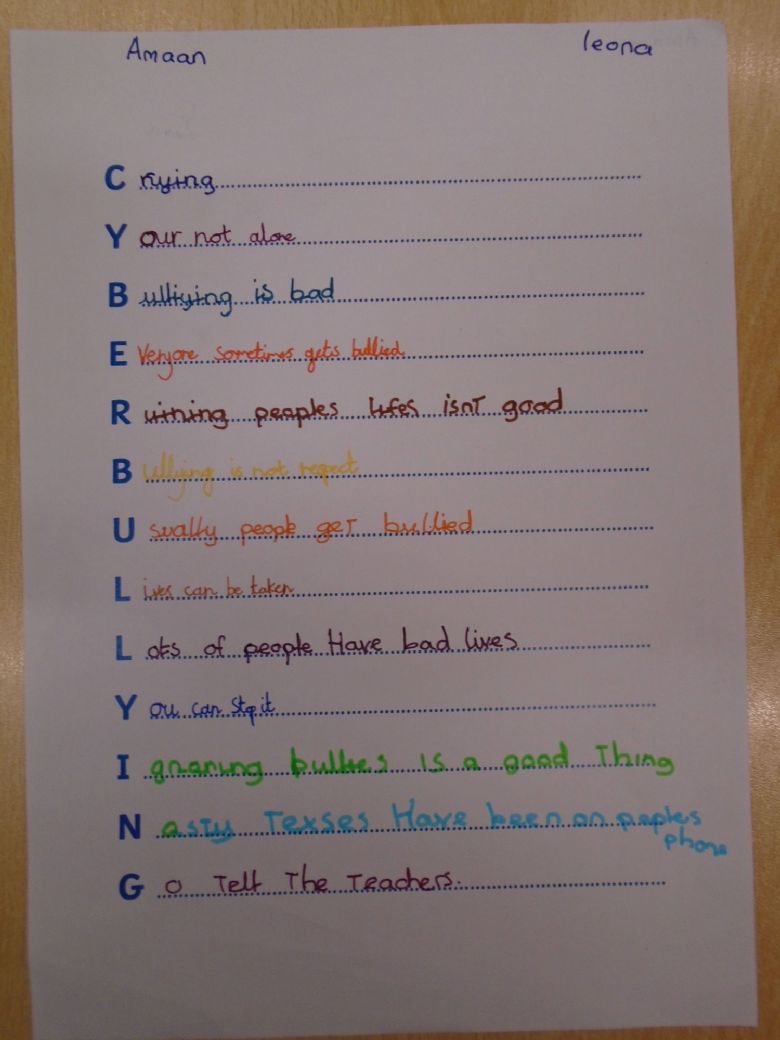 Amaan leona
Crying
Your not alone
Bulliying is bad
Everyone sometimes gets bullied
Ruining peoples lifes isnt good
Bullying is not respect
Usually people get bullied
Lives can be taken
Lots of people Have bad lives
You can stop it
Ignoring bullies is a good Thing
Nasty Texses Have been on peoples
phone
Go Tell The Teachers.